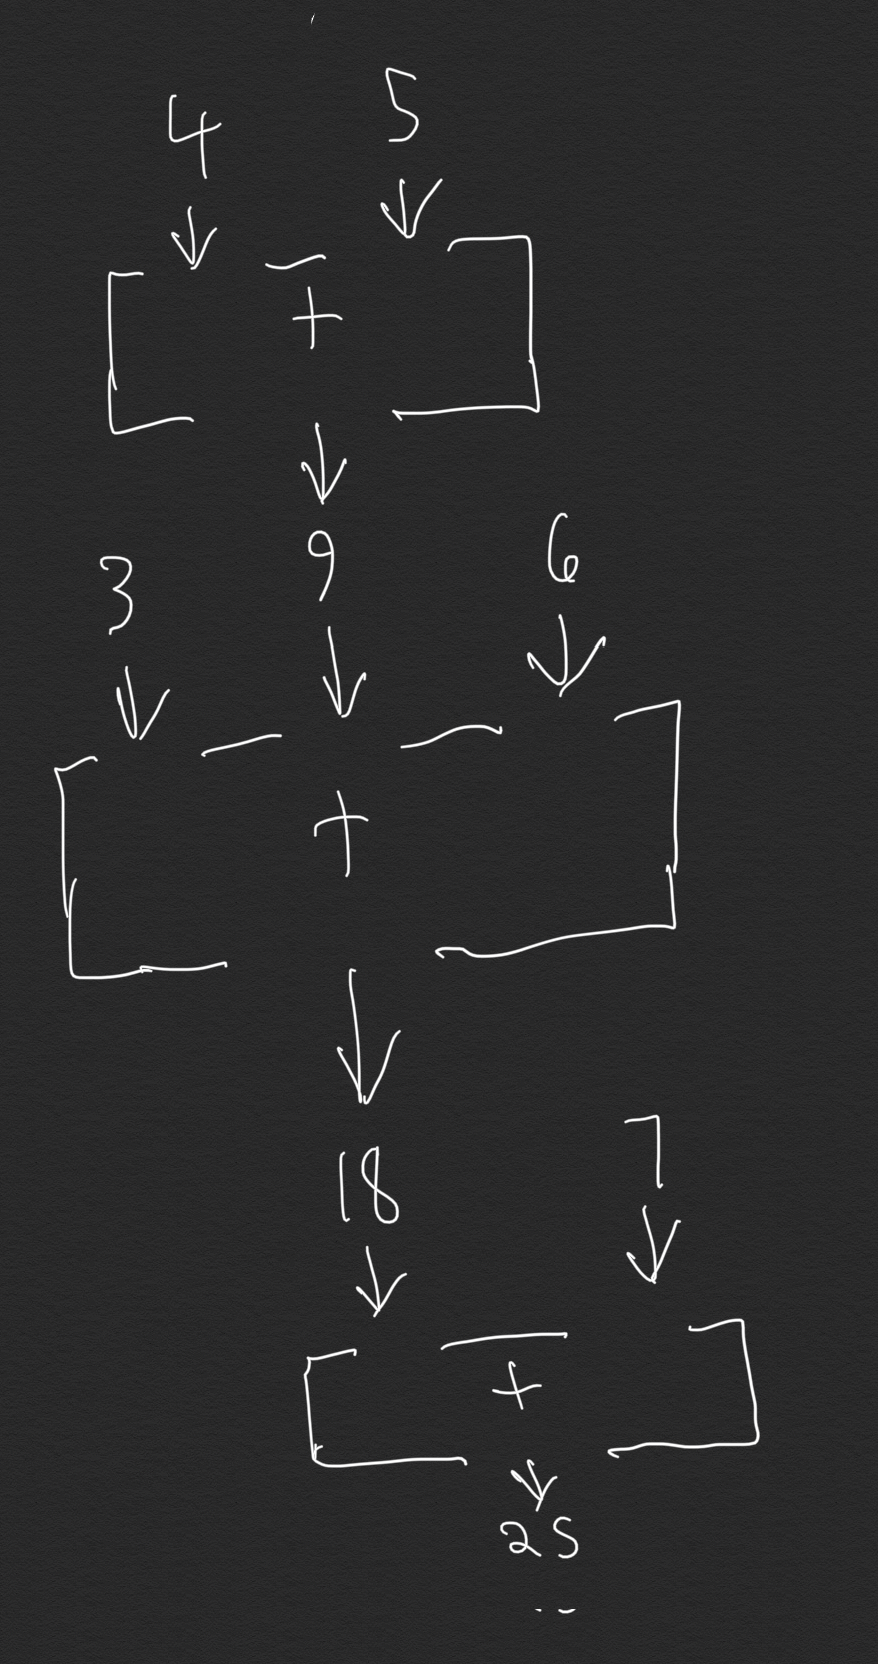 4 5
+
3 9 6
+
18 7
+
25